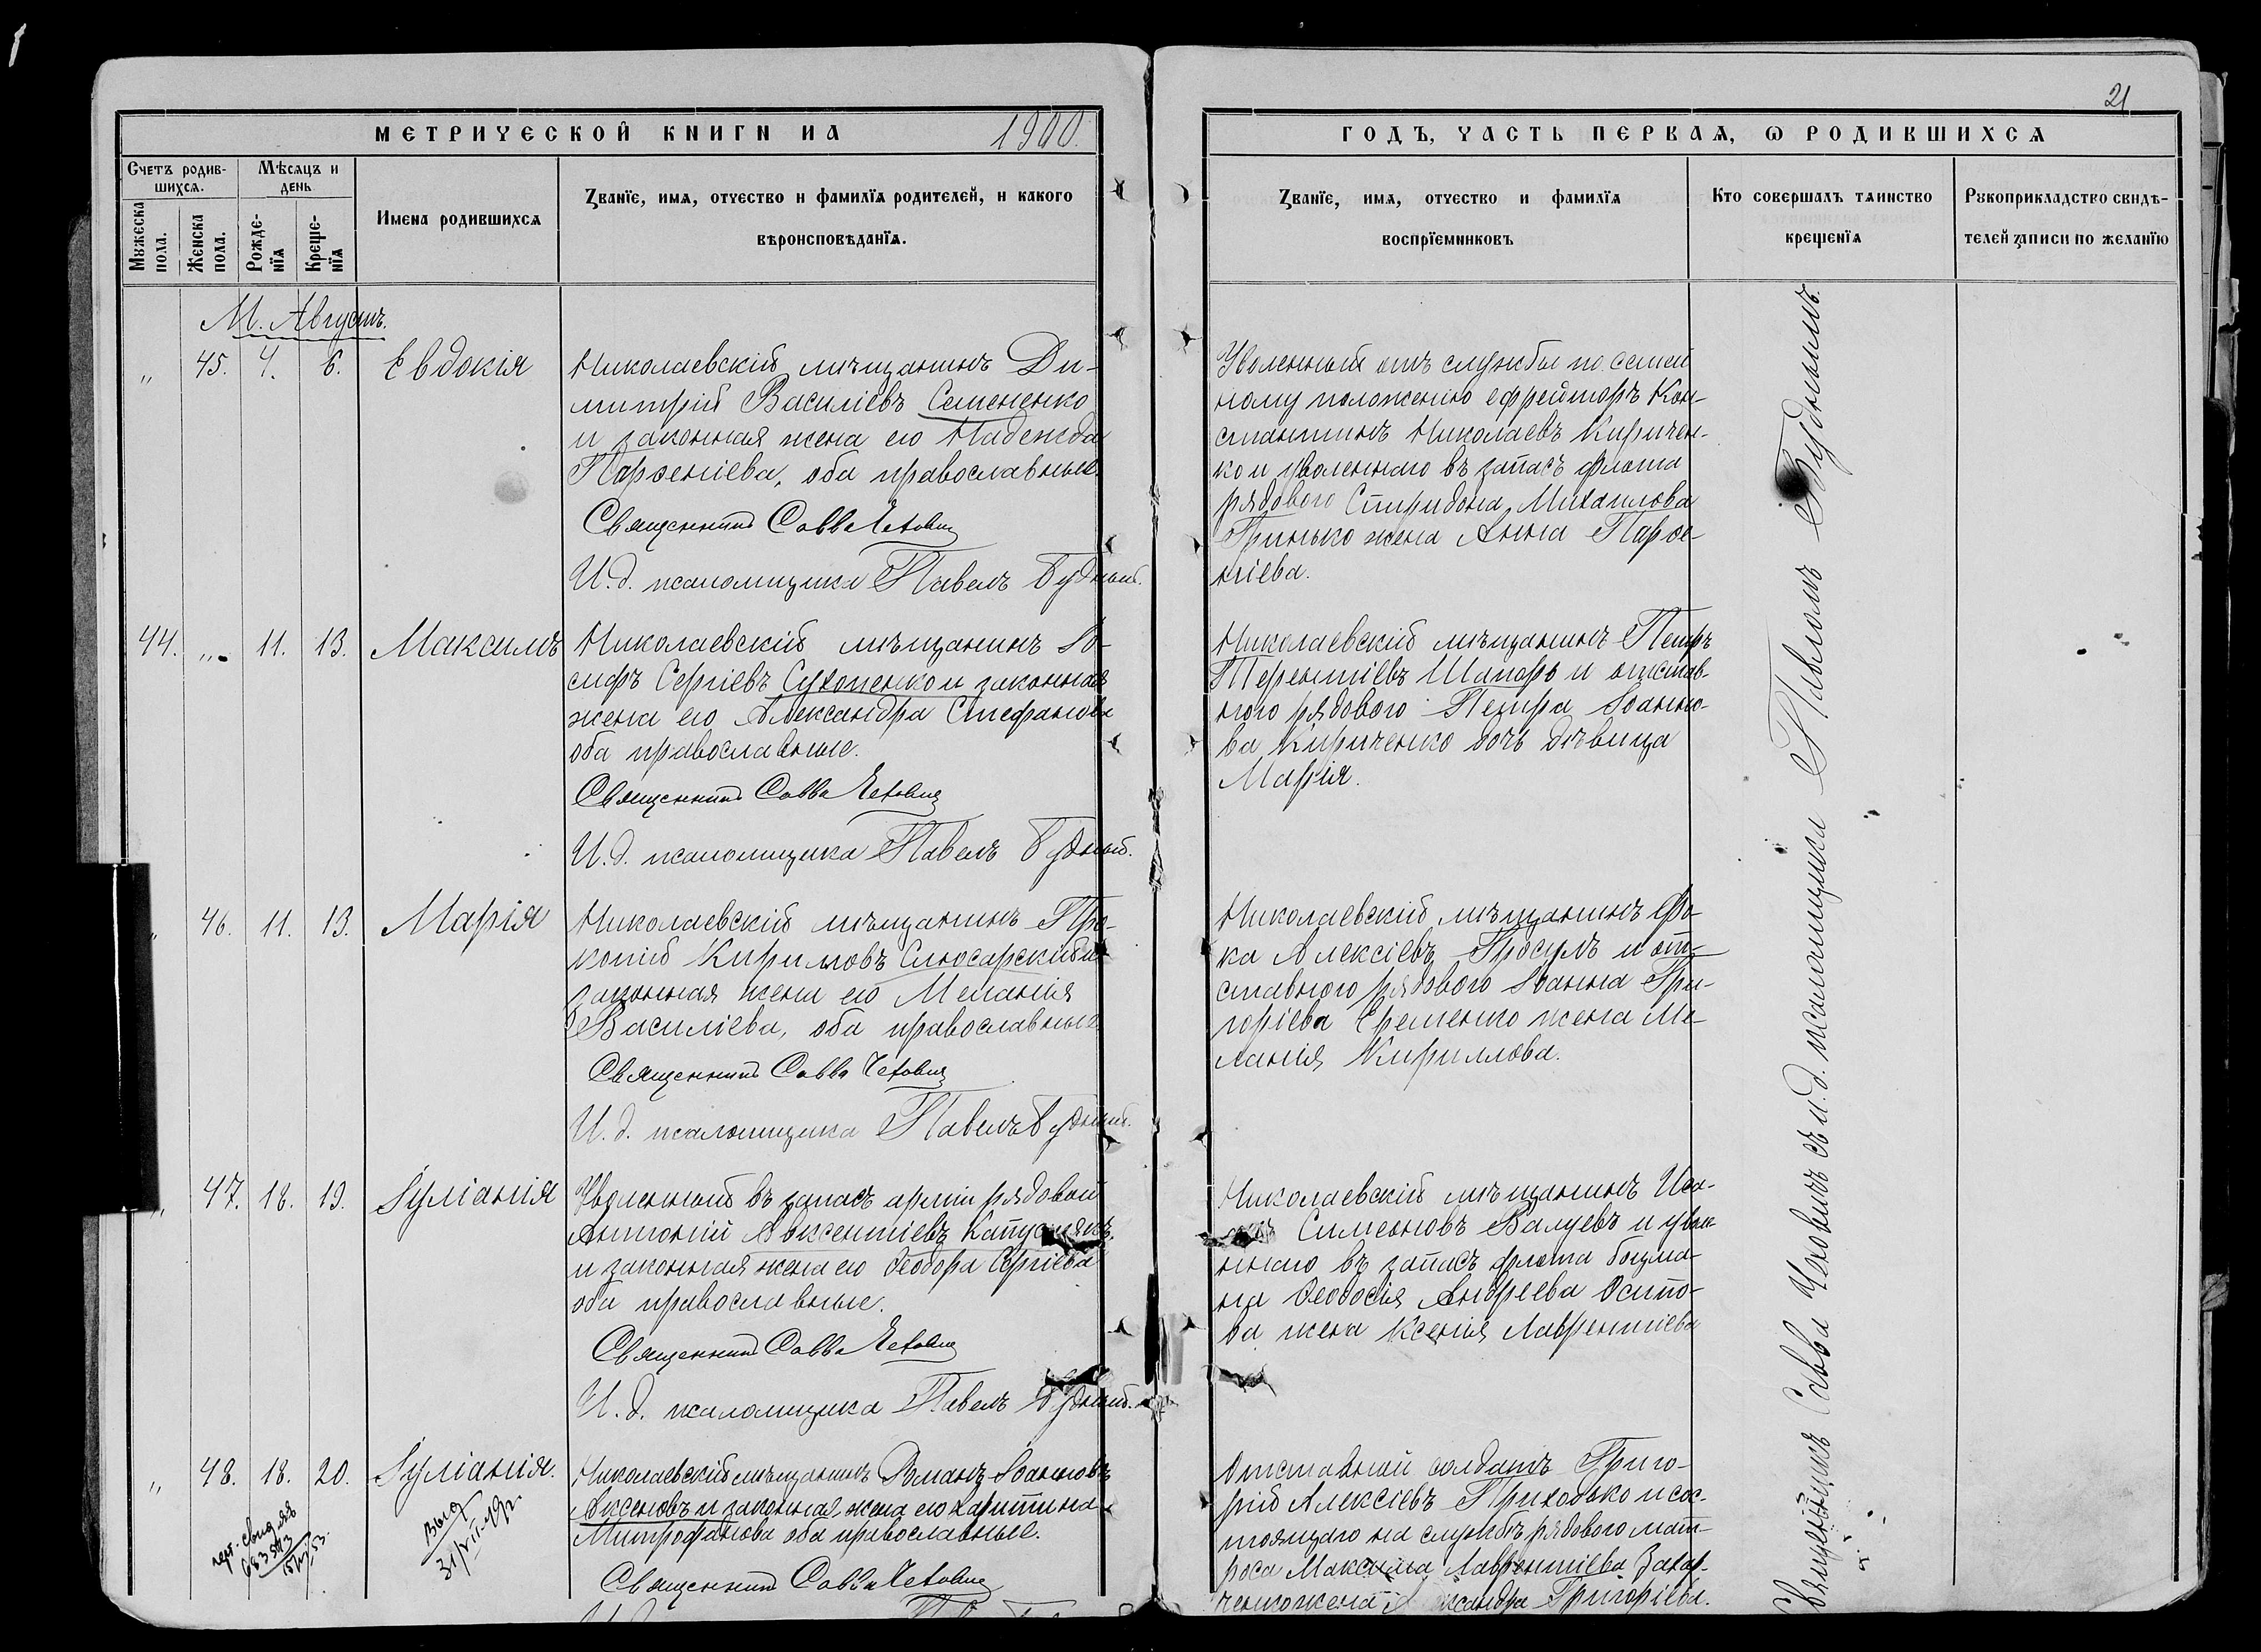 21
МЕТРИЧЕСКОЙ КНИГИ НА 1900.
ГОДЪ, ЧАСТЬ ПЕРВАЯ, Ѡ РОДИВШИХСЯ
Счетъ родив-
шихся.
Мѣсяцъ и
день
Мужеска
пола.
Женска
пола.
Рожде-
нїя
Креще-
нїя
Имена родившихся
Званїе, имя, отчество и фамилїя родителей, и какого
вѣроисповѣданїя.
Званїе, имя, отчество и фамилїя
воспрїемниковъ
Кто совершалъ таинство
крещенїя
Рукоприкладство свидѣ-
телей записи по желанїю
М. Августъ.
„ 45. 4. 6. Евдокія
Николаевскій мѣщанинъ Ди-
митрій Василіевъ Семененко
и законная жена его Надежда
Парѳеніева, оба православные.
Священникъ Савва Чехович
И. д. псаломщика Павелъ Будный.
Уволенный отъ службы по семей
ному положенію ефрейторъ Кон-
стантинъ Николаевъ Киричен-
ко и уволеннаго въ запасъ флота
рядового Спиридона Михаилова
Гринько жена Анна Парѳе-
ніева.
44. „ 11. 13. Максимъ
Николаевскій мѣщанинъ Іо-
сифъ Сергіевъ Сухопенко и законная
жена его Александра Стефанова
оба православные.
Священникъ Савва Чехович
И. д. псаломщика Павелъ Будный.
Николаевскій мѣщанинъ Петръ
Терентіевъ Шапарь и отстав-
ного рядового Петра Іоанно-
ва Кириченко дочь дѣвица
Марія.
„ 46. 11. 13. Марія
Николаевскій мѣщанинъ Про-
копій Кирилловъ Слюсарскій и
законная жена его Меланія
Василіева, оба православные
Священникъ Савва Чехович
И. д. псаломщика Павелъ Будный.
Николаевскій мѣщанинъ Фо-
ка Алексіевъ Гросулъ и от-
ставного рядового Іоанна Гри-
горіева Еременко жена Ме-
ланія Кириллова.
„ 47. 18. 19. Іуліанія
Уволенный въ запасъ арміи рядовой
Антоній Авксентіевъ Капуснякъ
и законная жена его Ѳеодора Сергіева
оба православные.
Священникъ Савва Чехович
И. д. псаломщика Павелъ Будный.
Николаевскій мѣщанинъ Иса-
Симеоновъ Валуевъ и увол-
ненаго въ запасъ флота боцма-
на Ѳеодосія Андреева Осипо-
ва жена Ксенія Лаврентіева
„ 48. 18. 20. Іуліанія.
Николаевскій мѣщанинъ Романъ Іоанновъ
Аксеновъ и законная жена его Харитина
Митрофанова оба православные.
Священникъ Савва Чехович
Отставной солдатъ Григо-
рій Алексіевъ Приходько и сос-
тоящаго на службѣ рядового мат-
роса Максима Лаврентіева Захар-
ченко жена Александра Григоріева.
Священникъ Савва Чеховичъ съ и. д. псаломщика Павломъ Буднымъ.